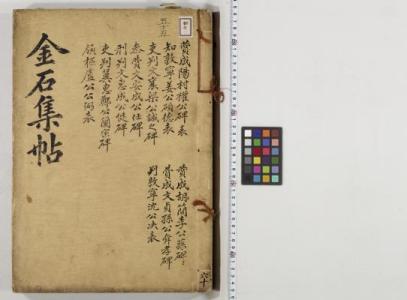 金石集帖
五十五
贊成陽村權公碑 表
知敦寧姜公碩德表
吏判文襄梁公誠之碑
參贊文安成公任碑
刑判文忠成公俔碑
吏判冀惠鄭公蘭宗碑
領樞盧公公弼表
贊成胡簡李公蓀碑
贊成文貞孫公舜孝碑
判敦寧沈公決表
六十